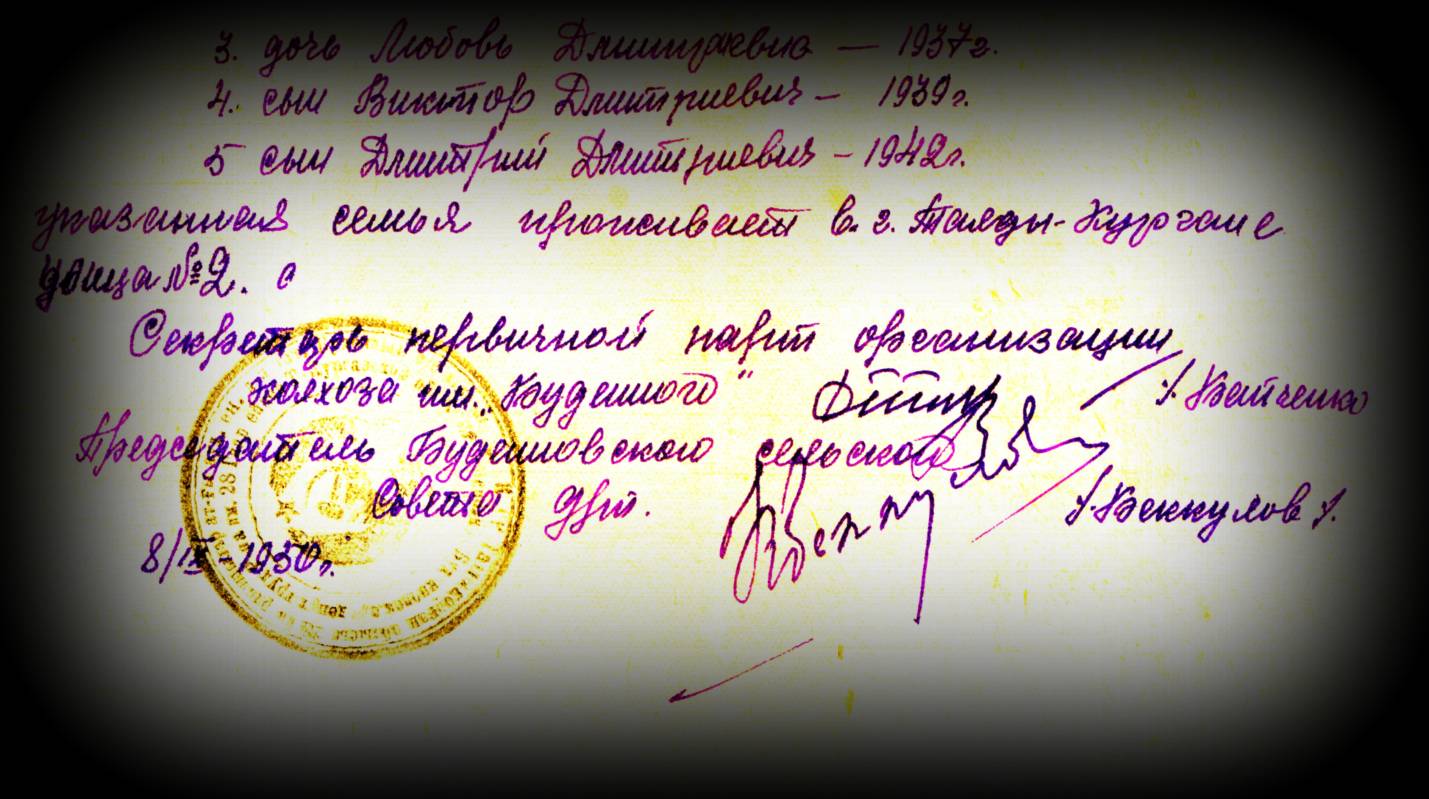 3. дочь Любовь Дмитриевна — 1937г.
4. сын Виктор Дмитриевич — 1939г.
5 сын Дмитрий Дмитриевич — 1942г.
указанная семья проживает в. г. Талды-Кургане
улица №2.
Секретарь первичной парт организации
колхоза им. „Буденного"
Председатель Буденновского сельского
Совета
/.Беккулов /.
8/IX-1950г.